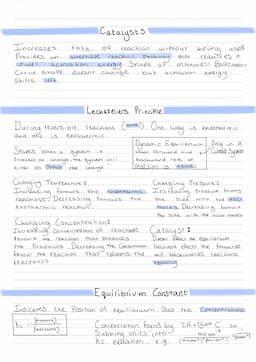 Catalysts
Increases rate of reaction without being used
Provides an alternate reaction pathway requires a
lower activation energy. Shape of maxwell Boltzmann
curve shape doesnt change but activation energy
shifts left.
Lechateliers Principle
During reversible reactions One way is endothermic
and one is exothermic.
States When a system is
subject to change the system will
shift to Oppose the change
Dynamic Equilibrium
When Forward and
backward rate of
reaction is equal
Only in a
Closed System
Changing Temperature:
Increasing favours the endothermic
reactions. Decreasing favours the
exothermic reaction.
Changing Pressure:
Increasing pressure favours
the side with the least
moles. Decreasing favours
the side with the most moles
Changing Concentration:
Increasing concentration of reactants
favours the reaction that produces
the products. Decreasing the concentration
favour the reaction that
reactants
Catalyst:
Doesnt affect the equilibrium
because effects the forwards
and backwards reactions
equally
Equilibrium Constant
Indicates the Position of equilibrium. Uses the Concentrations
Kc = [products]
[reactants]
Concentration found by 2A+B⇌C so
Subbing units into
Kc equation. e.g.